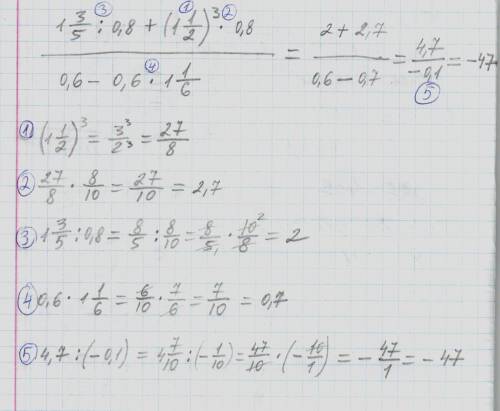 ③ ① ②
1 3/5 : 0,8 + (1 1/2)³ · 0,8 / 0,6 − 0,6 ④ · 1 1/6 = 2 + 2,7 / 0,6 − 0,7 = 4,7 / −0,1 ⑤ = −47
① (1 1/2)³ = 3³/2³ = 27/8
② 27/8 · 8/10 = 27/10 = 2,7
③ 1 3/5 : 0,8 = 8/5 : 8/10 = 8/5₁ · 10²/8 = 2
④ 0,6 · 1 1/6 = 6/10 · 7/6 = 7/10 = 0,7
⑤ 4,7 : (−0,1) = 4 7/10 : (−1/10) = 47/10 · (−10/1) = −47/1 = −47